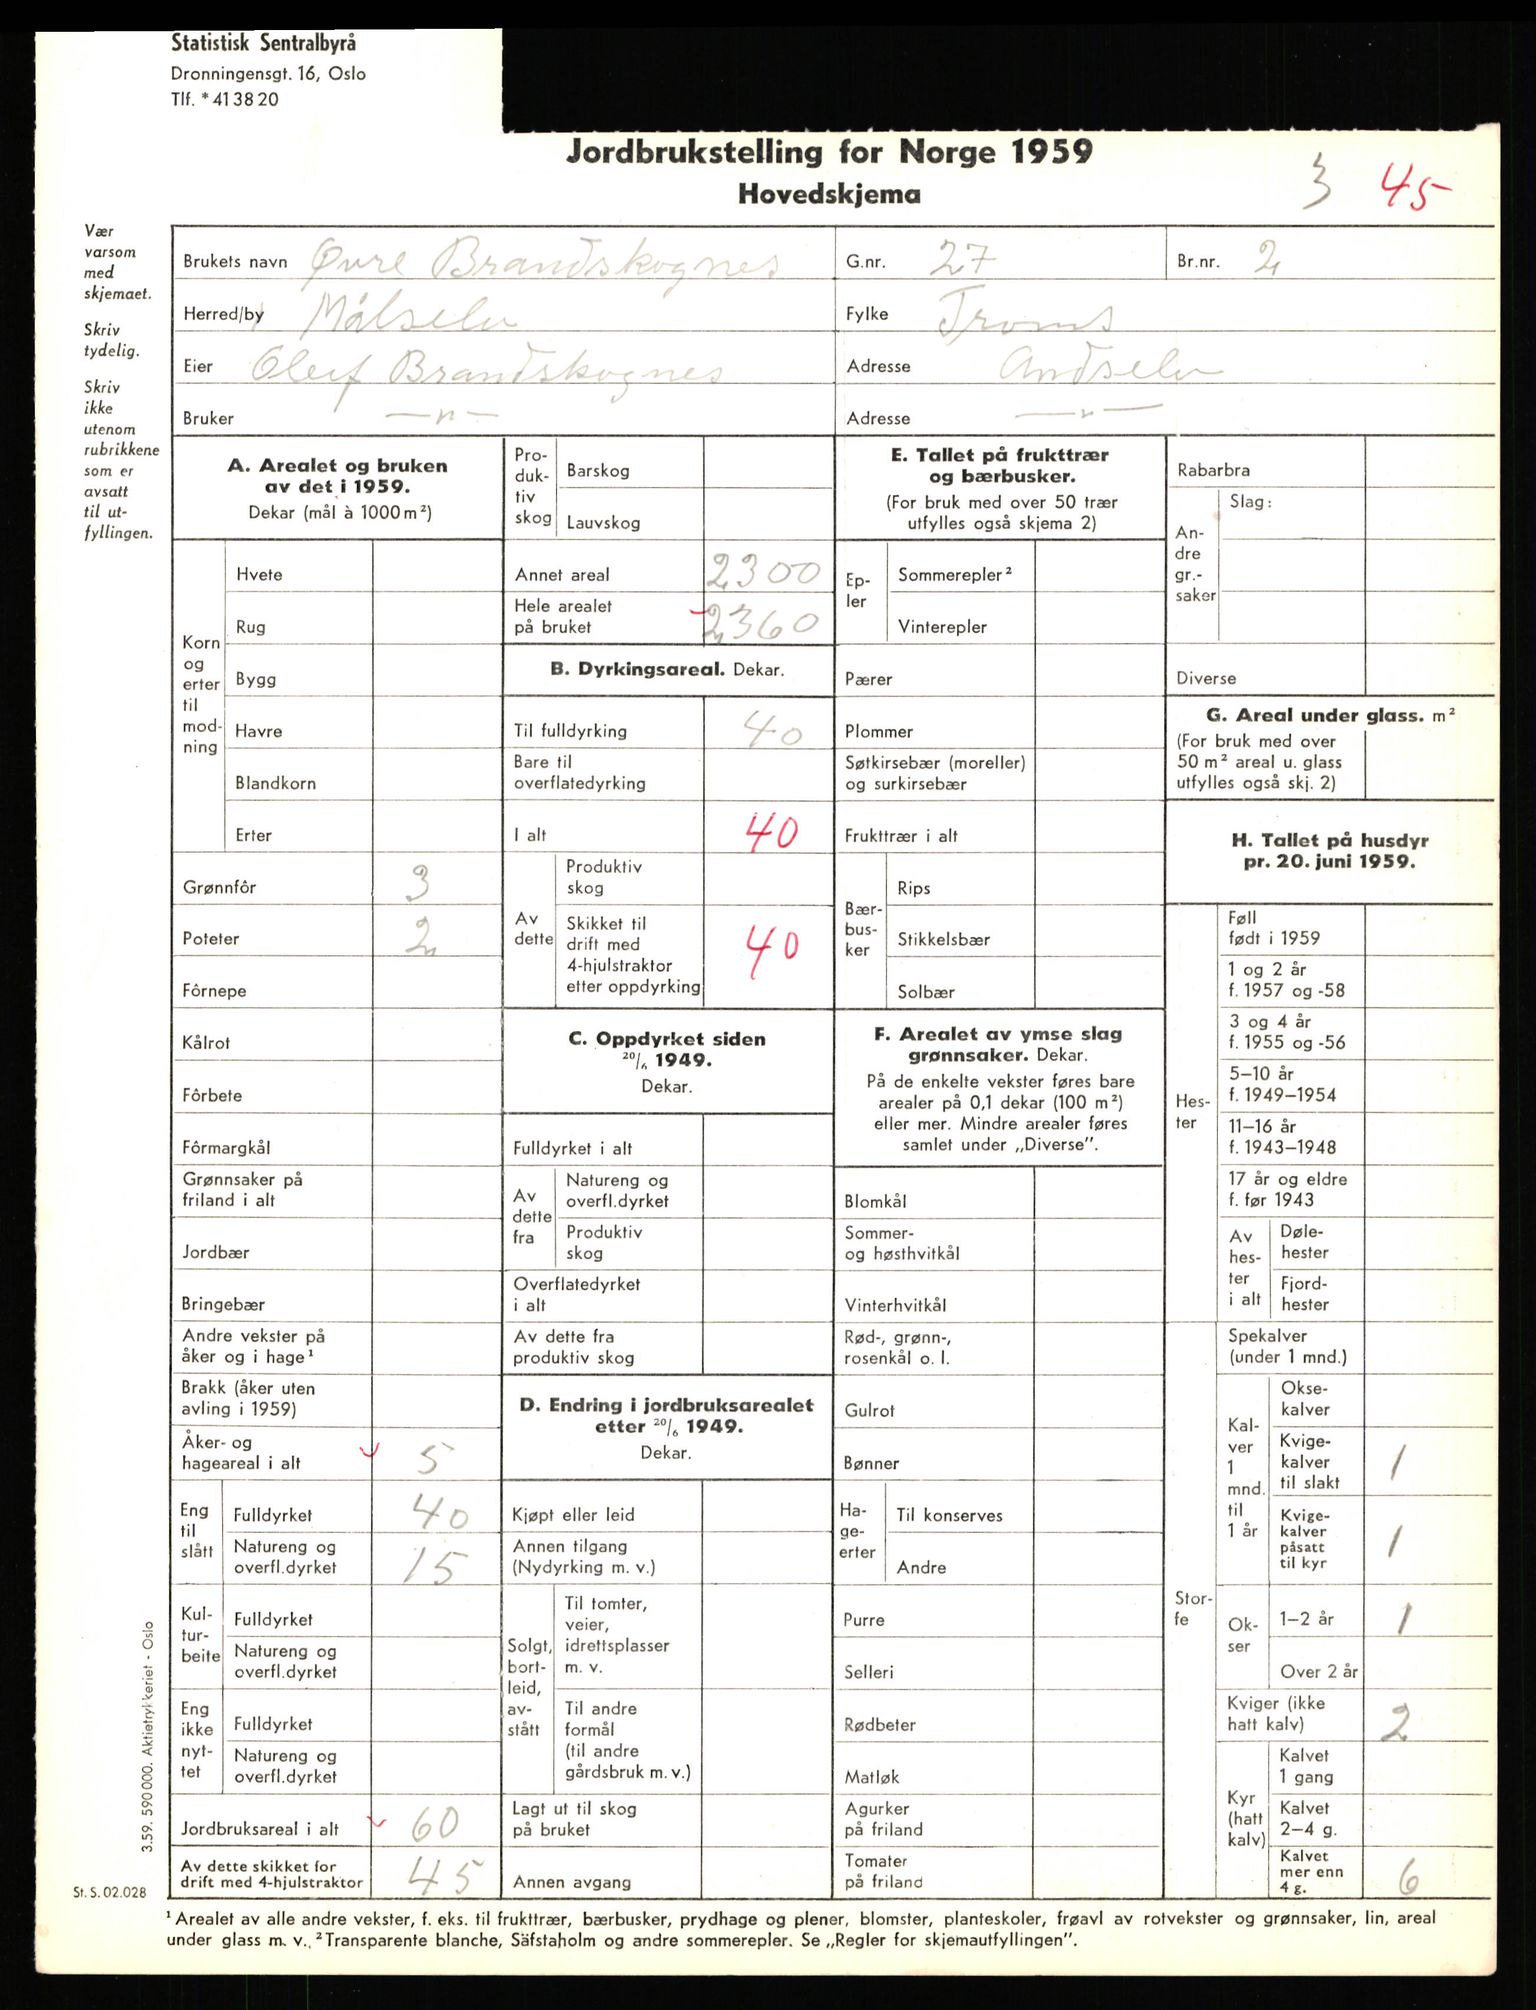 Statistisk Sentralbyrå
Dronningensgt. 16, Oslo
Tlf. * 41 38 20
Jordbrukstelling for Norge 1959
Hovedskjema
3 45
Vær
varsom
med
skjemaet.
Skriv
tydelig.
Skriv
ikke
utenom
rubrikkene
som er
avsatt
til ut-
fyllingen.
Brukets navn Øvre Brandskognes G.nr. 27 Br.nr. 2
Herred/by Målselv Fylke Troms
Eier Oleif Brandskognes Adresse Andselv
Bruker — " — Adresse — " —
A. Arealet og bruken
av det i 1959.
Dekar (mål à 1000 m²)
Korn
og
erter
til
mod-
ning
Hvete
Rug
Bygg
Havre
Blandkorn
Erter
Grønnfôr 3
Poteter 2
Fôrnepe
Kålrot
Fôrbete
Fôrmargkål
Grønnsaker på
friland i alt
Jordbær
Bringebær
Andre vekster på
åker og i hage¹
Brakk (åker uten
avling i 1959)
Åker- og
hageareal i alt 5
Eng
til
slått
Fulldyrket 40
Natureng og
overfl.dyrket 15
Kul-
tur-
beite
Fulldyrket
Natureng og
overfl.dyrket
Eng
ikke
nyt-
tet
Fulldyrket
Natureng og
overfl.dyrket
Jordbruksareal i alt 60
Av dette skikket for
drift med 4-hjulstraktor 45
Pro-
duk-
tiv
skog
Barskog
Lauvskog
Annet areal 2300
Hele arealet
på bruket 2360
B. Dyrkingsareal. Dekar.
Til fulldyrking 40
Bare til
overflatedyrking
I alt 40
Av
dette
Produktiv
skog
Skikket til
drift med
4-hjulstraktor
etter oppdyrking 40
C. Oppdyrket siden
20/6 1949.
Dekar.
Fulldyrket i alt
Av
dette
fra
Natureng og
overfl.dyrket
Produktiv
skog
Overflatedyrket
i alt
Av dette fra
produktiv skog
D. Endring i jordbruksarealet
etter 20/6 1949.
Dekar.
Kjøpt eller leid
Annen tilgang
(Nydyrking m. v.)
Solgt,
bort-
leid,
av-
stått
Til tomter,
veier,
idrettsplasser
m. v.
Til andre
formål
(til andre
gårdsbruk m. v.)
Lagt ut til skog
på bruket
Annen avgang
E. Tallet på frukttrær
og bærbusker.
(For bruk med over 50 trær
utfylles også skjema 2)
Ep-
ler
Sommerepler²
Vinterepler
Pærer
Plommer
Søtkirsebær (moreller)
og surkirsebær
Frukttrær i alt
Bær-
bus-
ker
Rips
Stikkelsbær
Solbær
F. Arealet av ymse slag
grønnsaker. Dekar.
På de enkelte vekster føres bare
arealer på 0,1 dekar (100 m²)
eller mer. Mindre arealer føres
samlet under „Diverse”.
Blomkål
Sommer-
og høsthvitkål
Vinterhvitkål
Rød-, grønn-,
rosenkål o. l.
Gulrot
Bønner
Ha-
ge-
erter
Til konserves
Andre
Purre
Selleri
Rødbeter
Matløk
Agurker
på friland
Tomater
på friland
Rabarbra
An-
dre
gr.-
saker
Slag:
Diverse
G. Areal under glass. m²
(For bruk med over
50 m² areal u. glass
utfylles også skj. 2)
H. Tallet på husdyr
pr. 20. juni 1959.
Hes-
ter
Føll
født i 1959
1 og 2 år
f. 1957 og -58
3 og 4 år
f. 1955 og -56
5–10 år
f. 1949–1954
11–16 år
f. 1943–1948
17 år og eldre
f. før 1943
Av
hes-
ter
i alt
Døle-
hester
Fjord-
hester
Stor-
fe
Spekalver
(under 1 mnd.)
Kal-
ver
1
mnd.
til
1 år
Okse-
kalver
Kvige-
kalver
til slakt 1
Kvige-
kalver
påsatt
til kyr 1
Ok-
ser
1–2 år 1
Over 2 år
Kviger (ikke
hatt kalv) 2
Kyr
(hatt
kalv)
Kalvet
1 gang
Kalvet
2–4 g.
Kalvet
mer enn
4 g. 6
3.59. 590 000. Aktietrykkeriet - Oslo
St. S. 02.028
¹ Arealet av alle andre vekster, f. eks. til frukttrær, bærbusker, prydhage og plener, blomster, planteskoler, frøavl av rotvekster og grønnsaker, lin, areal
under glass m. v.. ² Transparente blanche, Säfstaholm og andre sommerepler. Se „Regler for skjemautfyllingen”.